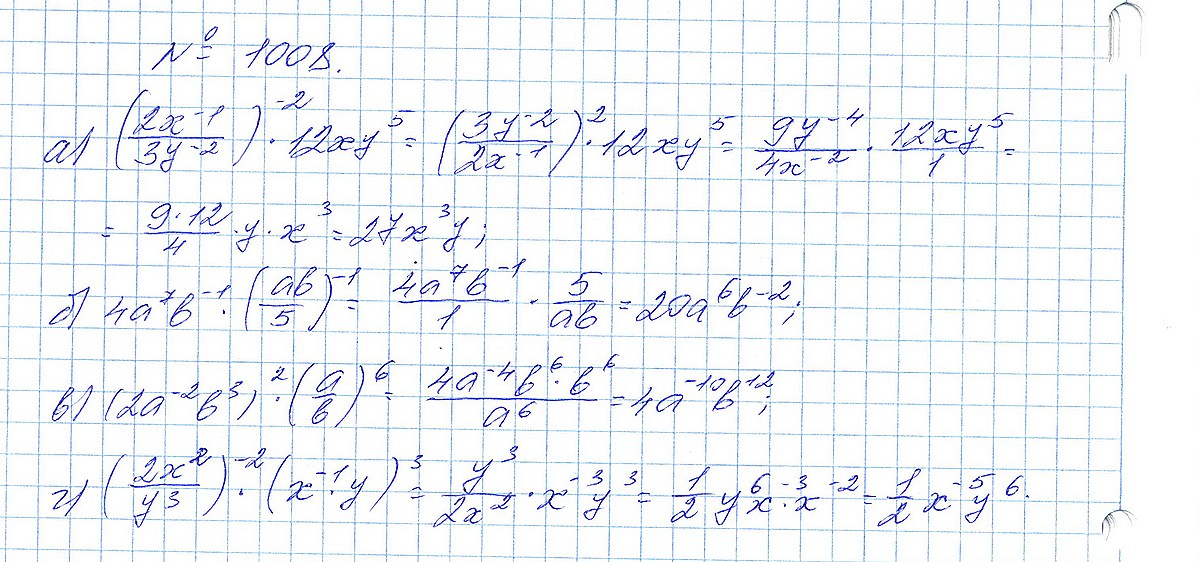 № 1008.
а) (2x⁻¹/3y⁻²)⁻² · 12xy⁵ = (3y⁻²/2x⁻¹)² · 12xy⁵ = 9y⁻⁴/4x⁻² · 12xy⁵/1 =
= 9·12/4 · y · x³ = 27x³y;
б) 4a⁷b⁻¹ · (ab/5)⁻¹ = 4a⁷b⁻¹/1 · 5/ab = 20a⁶b⁻²;
в) (2a⁻²b³)² · (a/b)⁶ = 4a⁻⁴b⁶·b⁶/a⁶ = 4a⁻¹⁰b¹²;
г) (2x²/y³)⁻² · (x⁻¹·y)³ = y³/2x² · x⁻³y³ = 1/2 y⁶x⁻³·x⁻² = 1/2 x⁻⁵y⁶.